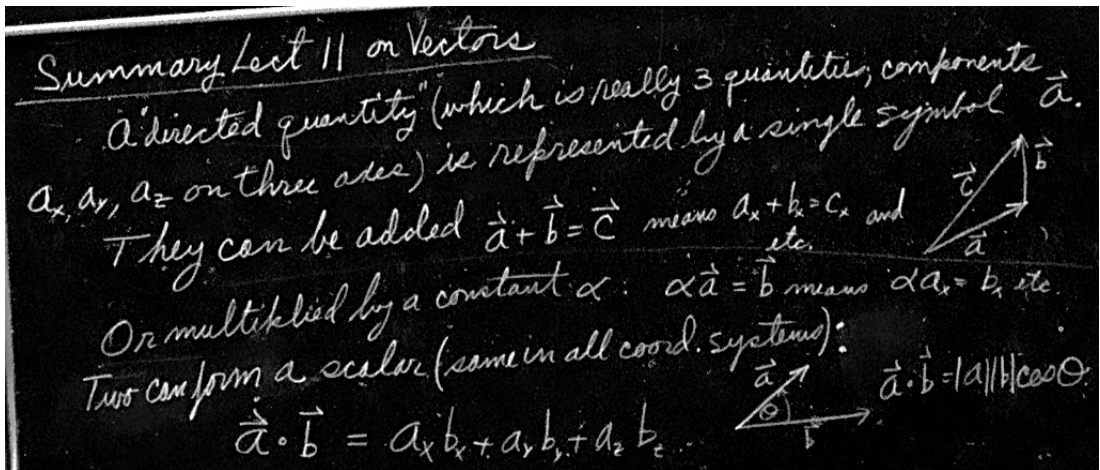 Summary Lect 11 on Vectors
A "directed quantity" (which is really 3 quantities, components
aₓ, aᵧ, a_z on three axes) is represented by a single symbol a⃗.
They can be added a⃗ + b⃗ = c⃗ means aₓ + bₓ = cₓ and
etc.
c⃗ b⃗ a⃗
Or multiplied by a constant α : αa⃗ = b⃗ means αaₓ = bₓ etc.
Two can form a scalar (same in all coord. systems):
a⃗ θ b⃗ a⃗ · b⃗ = |a||b|cosθ.
a⃗ · b⃗ = aₓbₓ + aᵧbᵧ + a_z b_z.